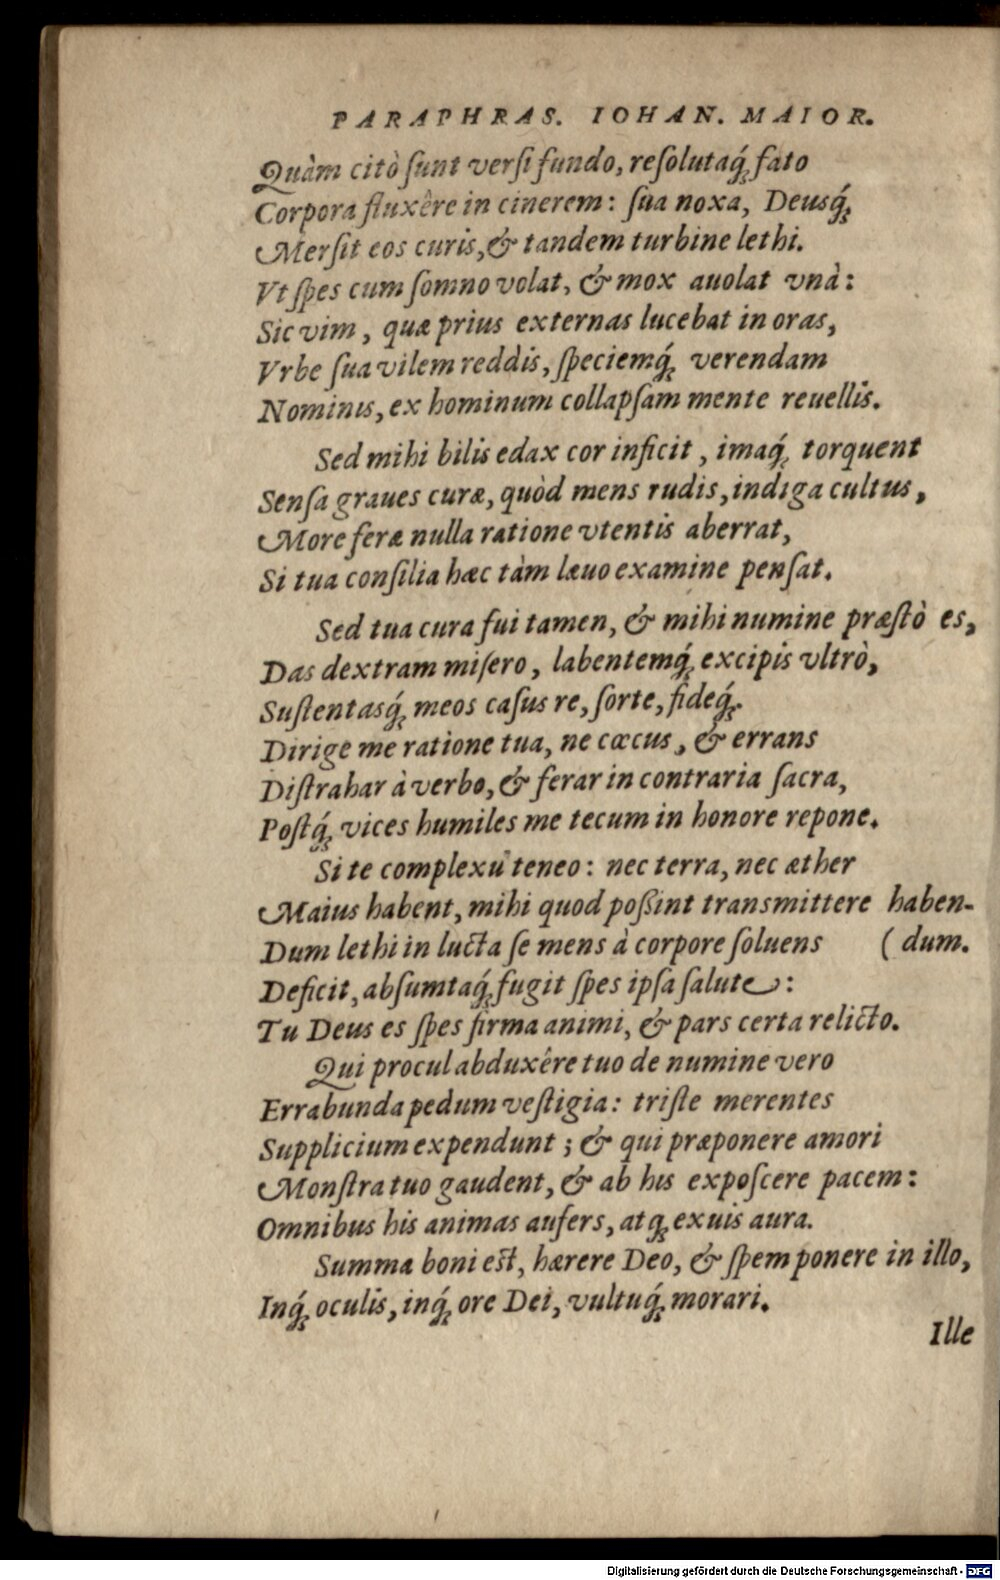 PARAPHRAS. IOHAN. MAIOR.
Quàm citò ſunt verſi fundo, reſolutaq́; fato
Corpora fluxêre in cinerem: ſua noxa, Deusq́;
Merſit eos curis, & tandem turbine lethi.
Vt ſpes cum ſomno volat, & mox auolat vnà:
Sic vim, quæ prius externas lucebat in oras,
Vrbe ſua vilem reddis, ſpeciemq́; verendam
Nominis, ex hominum collapſam mente reuellis.
Sed mihi bilis edax cor inficit, imaq́; torquent
Senſa graues curæ, quòd mens rudis, indiga cultus,
More feræ nulla ratione vtentis aberrat,
Si tua conſilia hæc tàm læuo examine penſat.
Sed tua cura fui tamen, & mihi numine præſtò es,
Das dextram miſero, labentemq́; excipis vltrò,
Suſtentasq́; meos caſus re, ſorte, fideq́;.
Dirige me ratione tua, ne cœcus, & errans
Diſtrahar à verbo, & ferar in contraria ſacra,
Poſtq́; vices humiles me tecum in honore repone.
Si te complexu teneo: nec terra, nec æther
Maius habent, mihi quod poßint transmittere haben-
Dum lethi in lucta ſe mens à corpore ſoluens (dum.
Deficit, abſumtaq́; fugit ſpes ipſa ſalute:
Tu Deus es ſpes firma animi, & pars certa relicto.
Qui procul abduxêre tuo de numine vero
Errabunda pedum veſtigia: triſte merentes
Supplicium expendunt; & qui præponere amori
Monſtra tuo gaudent, & ab his expoſcere pacem:
Omnibus his animas aufers, atq; exuis aura.
Summa boni eſt, hærere Deo, & ſpem ponere in illo,
Inq́; oculis, inq́; ore Dei, vultuq́; morari.
Ille
Digitalisierung gefördert durch die Deutsche Forschungsgemeinschaft - DFG